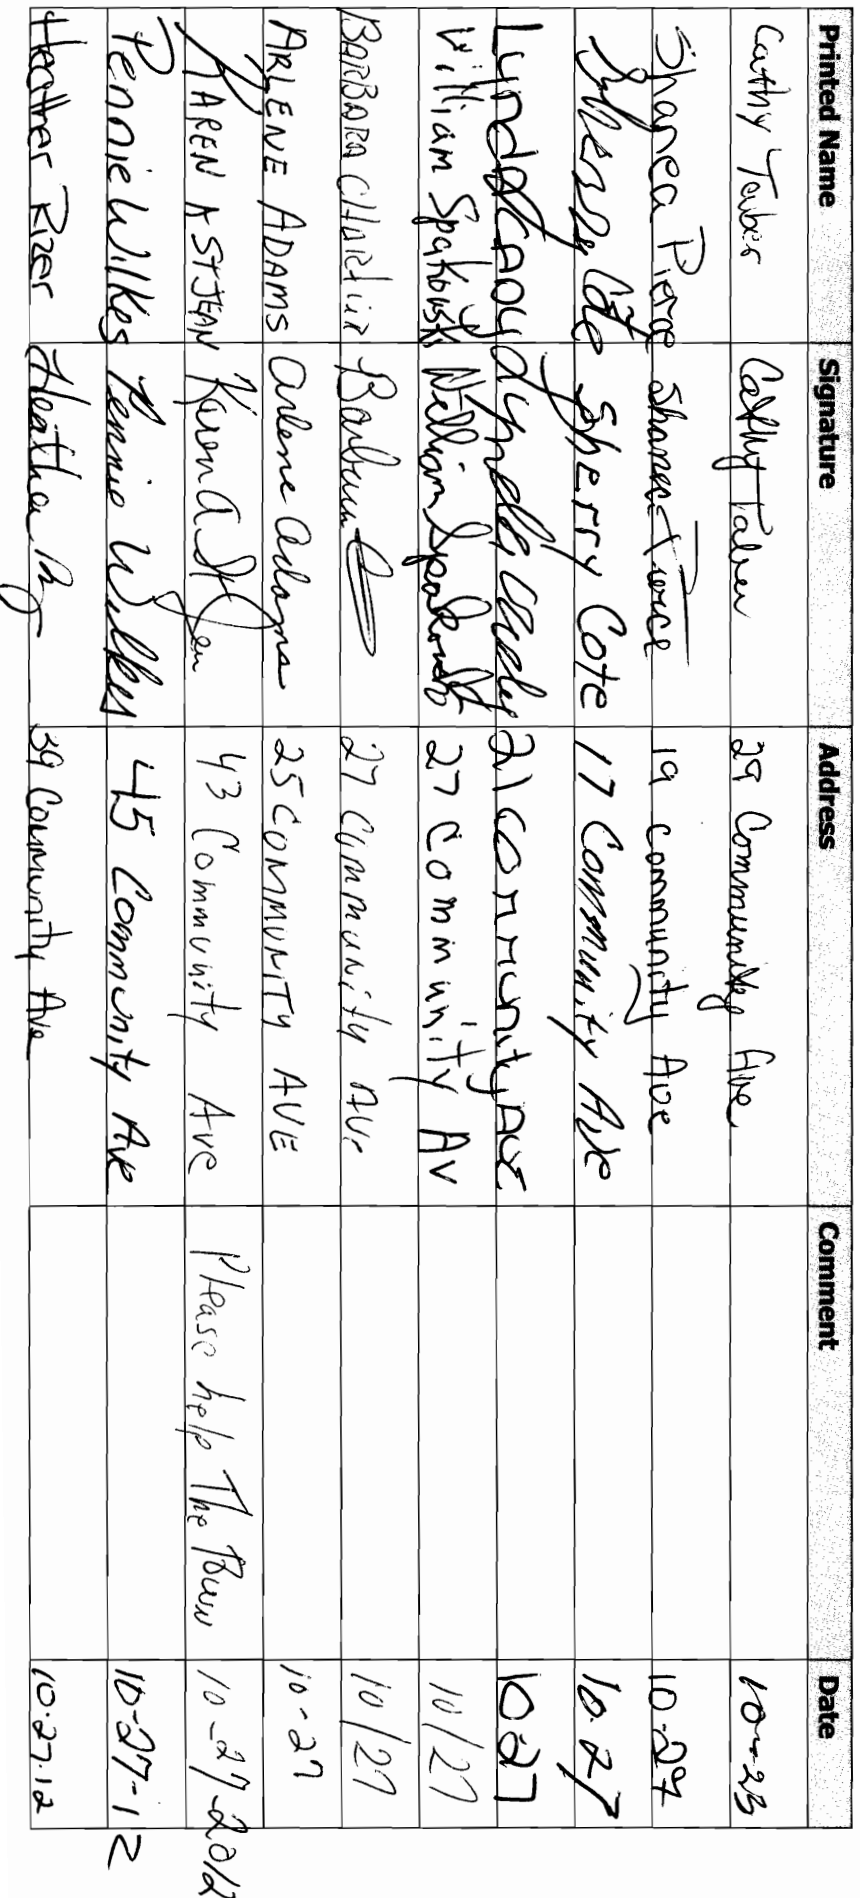 Printed Name Signature Address Comment Date
Cathy Tauber Cathy Tauber 29 Community Ave 10-23
Shanea Pierce Shanea Pierce 19 Community Ave 10-27
Cote Sherry Cote 17 Community Ave 10.27
Lynda 21 Community Ave 10-27
William Spakowski William Spakowski 27 Community Av 10/27
BARBARA Barbara 27 Community AVE 10/27
ARLENE ADAMS Arlene Adams 25 COMMUNITY AVE 10-27
KAREN A ST JEAN Karen A St Jean 43 Community Ave Please help The Town 10-27-2012
Pennie Wilkes Pennie Wilkes 45 Community Ave 10-27-12
Heather Rizer Heather 39 Community Ave 10.27.12